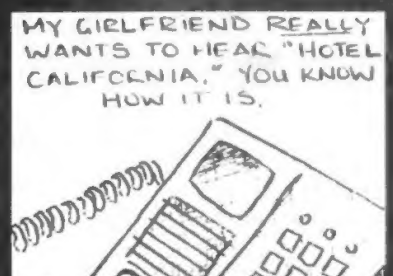 MY GIRLFRIEND REALLY
WANTS TO HEAR "HOTEL
CALIFORNIA." YOU KNOW
HOW IT IS.